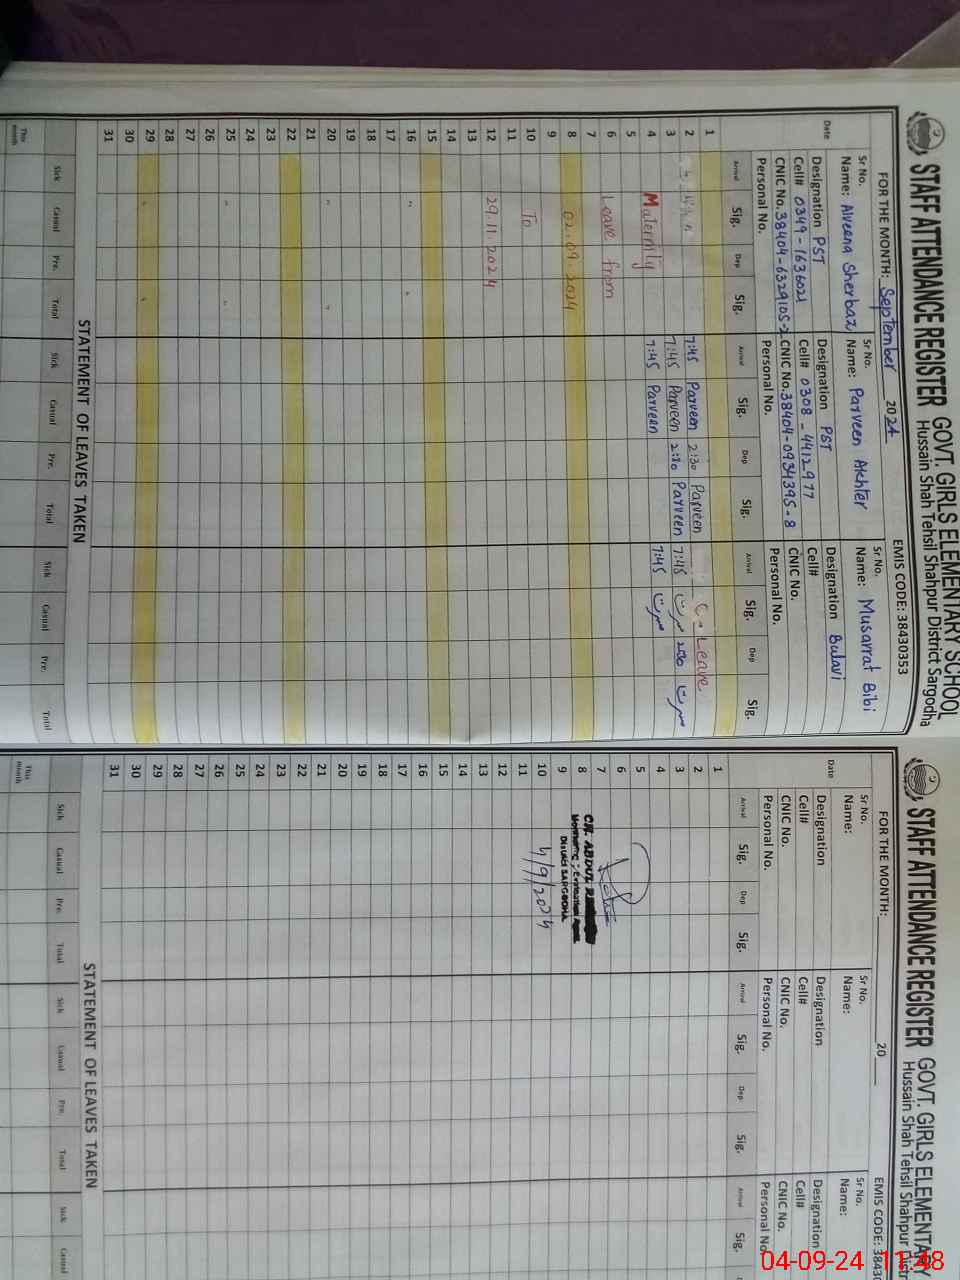 STAFF ATTENDANCE REGISTER GOVT. GIRLS ELEMENTARY SCHOOL
Hussain Shah Tehsil Shahpur District Sargodha
FOR THE MONTH: September 2024 EMIS CODE: 38430353
Sr No. Sr No. Sr No.
Name: Alveena Sherbaz Name: Parveen Akhter Name: Musarrat Bibi
Designation PST Designation PST Designation Bulavi
Cell# 0349-1636021 Cell# 0308-4412977 Cell#
CNIC No. 38404-6329105-2 CNIC No. 38404-0934395-8 CNIC No.
Personal No. Personal No. Personal No.
Date Arrival Sig. Dep Sig. Arrival Sig. Dep Sig. Arrival Sig. Dep Sig.
1
2 7:45 Parveen 2:30 Parveen Leave
3 7:45 Parveen 2:30 Parveen 7:45 مسرت 2:30 مسرت
4 Maternity 7:45 Parveen 7:45 مسرت
5
6 Leave from
7
8 02.09.2024
9
10 To
11
12 29.11.2024
13
14
15
16
17
18
19
20
21
22
23
24
25
26
27
28
29
30
31
STATEMENT OF LEAVES TAKEN
Sick Casual Pre. Total Sick Casual Pre. Total Sick Casual Pre. Total
This month
STAFF ATTENDANCE REGISTER GOVT. GIRLS ELEMENTARY
Hussain Shah Tehsil Shahpur Distr
FOR THE MONTH: 20 EMIS CODE: 3843
Sr No. Sr No. Sr No.
Name: Name: Name:
Designation Designation Designation
Cell# Cell# Cell#
CNIC No. CNIC No. CNIC No.
Personal No. Personal No. Personal No.
Date Arrival Sig. Dep Sig. Arrival Sig. Dep Sig. Arrival Sig.
1
2
3
4
5
6
7 CH. ABDUL
8
9 SARGODHA
10 4/9/2024
11
12
13
14
15
16
17
18
19
20
21
22
23
24
25
26
27
28
29
30
31
STATEMENT OF LEAVES TAKEN
Sick Casual Pre. Total Sick Casual Pre. Total Sick Casual
This month
04-09-24 11:48